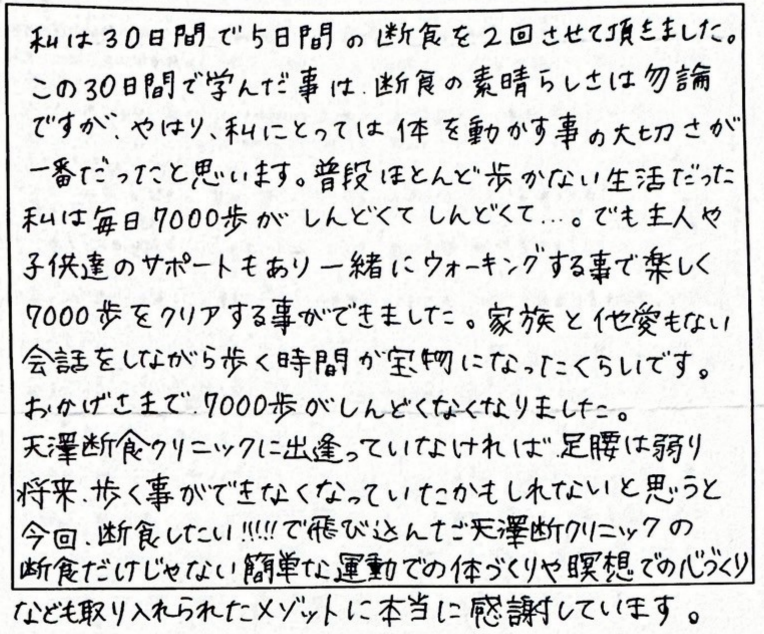 私は30日間で5日間の断食を2回させて頂きました。
この30日間で学んだ事は、断食の素晴らしさは勿論
ですが、やはり、私にとっては体を動かす事の大切さが
一番だったこと思います。普段ほとんど歩かない生活だった
私は毎日7000歩がしんどくてしんどくて…。でも主人や
子供達のサポートもあり一緒にウォーキングする事で楽しく
7000歩をクリアする事ができました。家族と他愛もない
会話をしながら歩く時間が宝物になったくらいです。
おかげさまで、7000歩がしんどくなくなりました。
天澤断食クリニックに出逢っていなければ、足腰は弱り
将来、歩く事ができなくなっていたかもしれないと思うと
今回、断食したい!!!!!で飛び込んだご天澤断クリニックの
断食だけじゃない簡単な運動での体づくりや瞑想での心づくり
なども取り入れられたメゾットに本当に感謝しています。